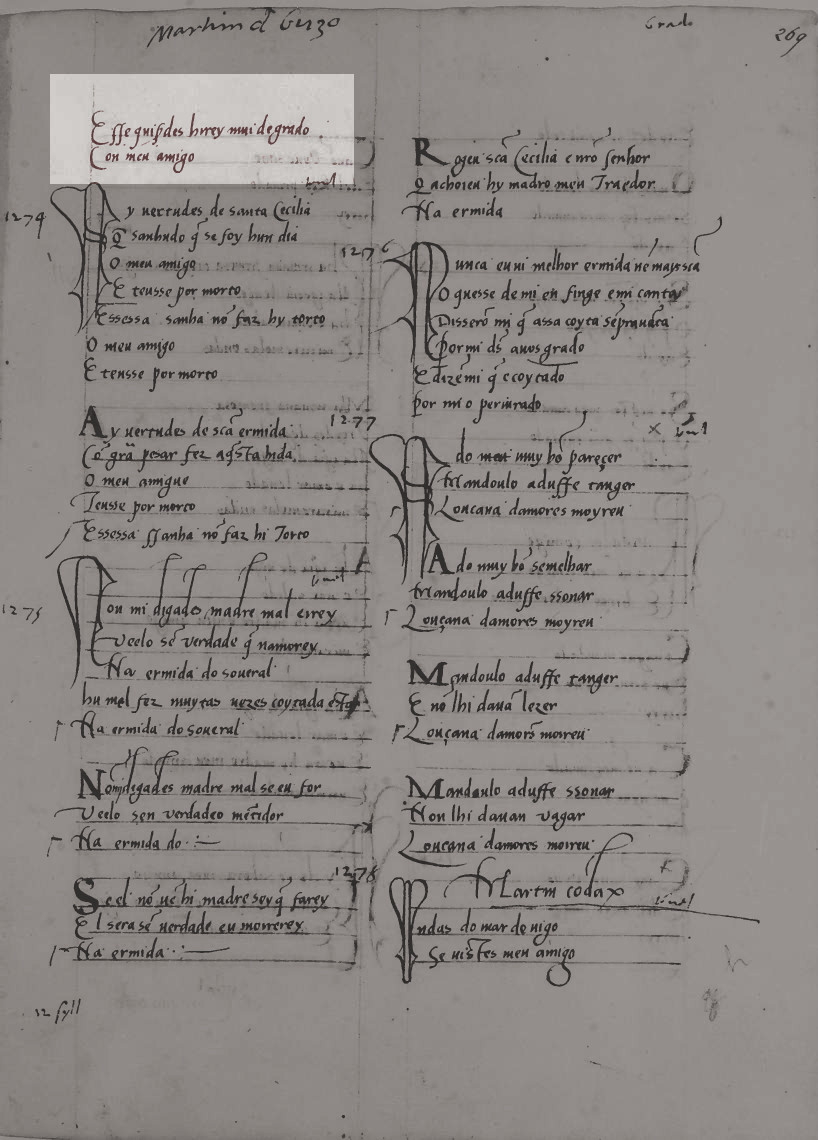 Martim d Girzo
Grado
269
Esse quisdes hirey mui de grado
Con meu amigo
1274
Ay uertudes de santa Cecilia
Q̃ sanhudo q̃ se foy hun dia
O meu amigo
E teusse por morto
Essessa sanha nõ faz hy torto
O meu amigo
E teusse por morto
Ay uertudes de scã ermida
Cõ grã pesar fez aq̃sta hida
O meu amigue
Teusse por morto
Essessa ssanha nõ faz hi Torto
1275
Non mi digades madre mal eirey
Veelo sẽ verdade q̃ namorey
Na ermida do soueral
hu mel fez muytas uezes coytada estar
Na ermida do soueral
Nom digades madre mal se eu for
Veelo sen verdadeo mẽtidor
Na ermida do
Se el nõ uẽ hi madre sey q̃ farey
El sera sẽ verdade eu morrerey
Na ermida
12 syll
Rogeu scã Cecilia e nrõ senhor
Q achoieu hy madro meu Traedor
Na ermida
1276
Nunca eu ui melhor ermida nẽ mays scã
O quesse de mi en finge e mi canta
Disserõ mi q̃ assa coyta sẽpr auãta
Por mi ds̃ auos grado
E dizẽ mi q̃ e coytado
Por mi o periurado
1277
Ado muy bõ pareçer
Mandoulo aduffe tanger
Louçana damores moyreu
Ado muy bõ semelhar
Mandoulo aduffe ssonar
Louçana damores moyreu
Mandoulo aduffe tanger
E nõ lhi dauã lezer
Louçana damors̃ moireu
Mandoulo aduffe ssonar
Non lhi dauan vagar
Louçana damores moireu
1278
Martin codax
Ondas do mar de uigo
Se uistes meu amigo